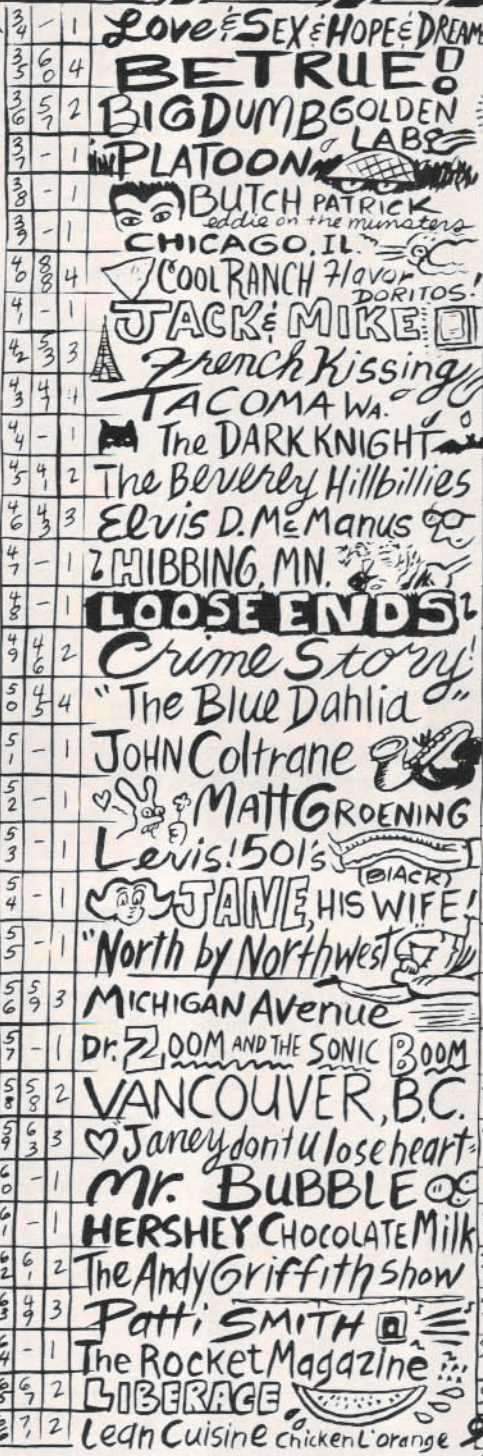 34 - 1 Love & SEX & HOPE & DREAM
35 60 4 BE TRUE!
36 57 2 BIG DUMB GOLDEN LABS
37 - 1 PLATOON
38 - 1 BUTCH PATRICK
eddie on the munsters
39 - 1 CHICAGO, IL.
40 88 4 COOL RANCH Flavor DORITOS!
41 - 1 JACK & MIKE
42 53 3 French Kissing
43 47 4 TACOMA WA.
44 - 1 The DARK KNIGHT
45 41 2 The Beverly Hillbillies
46 43 3 Elvis D. McManus
47 - 1 HIBBING, MN.
48 - 1 LOOSE ENDS
49 46 2 Crime Story!
50 45 4 "The Blue Dahlia"
51 - 1 JOHN Coltrane
52 - 1 MATT GROENING
53 - 1 Levis! 501's
(BLACK)
54 - 1 JANE, HIS WIFE!
55 - 1 "North by Northwest"
56 59 3 MICHIGAN Avenue
57 - 1 Dr. ZOOM AND THE SONIC BOOM
58 58 2 VANCOUVER, B.C.
59 63 3 "Janey don't u lose heart"
60 - 1 Mr. BUBBLE
61 - 1 HERSHEY CHOCOLATE Milk
62 61 2 The Andy Griffith Show
63 49 3 Patti SMITH
64 - 1 The Rocket Magazine
65 67 2 LIBERACE
66 71 2 Lean Cuisine chicken L'orange